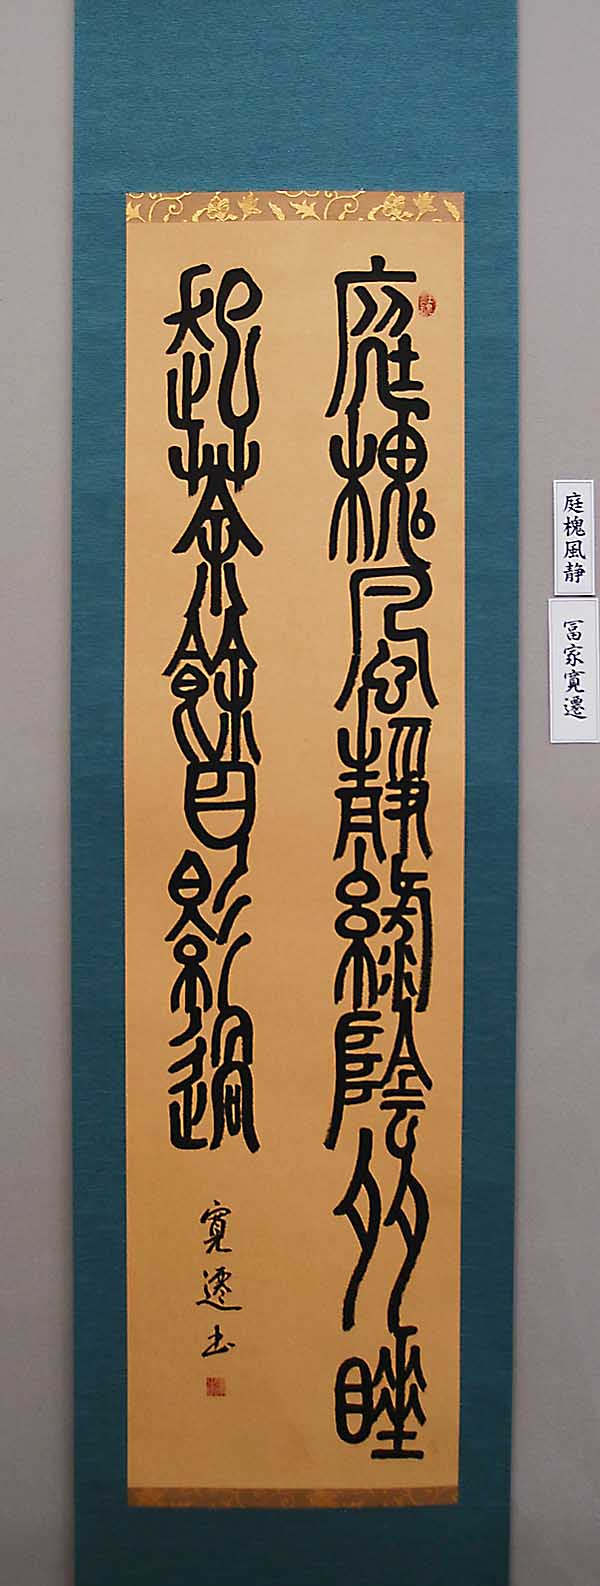 庭槐風靜綠陰多睡
起茶餘日影過
寛遷書
庭槐風静
冨家寛遷